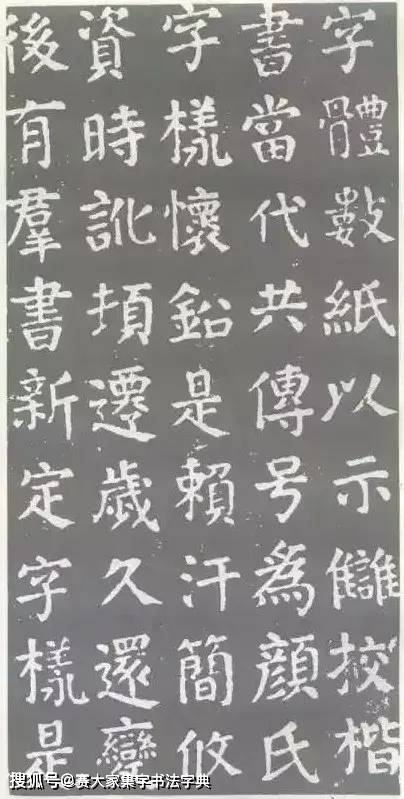 字體數紙以示讎挍楷
書當代共傳号為顔氏
字樣懷鉛是賴汗簡攸
資時訛頓遷歲久還變
後有羣書新定字樣是
搜狐号@赛大家集字书法字典